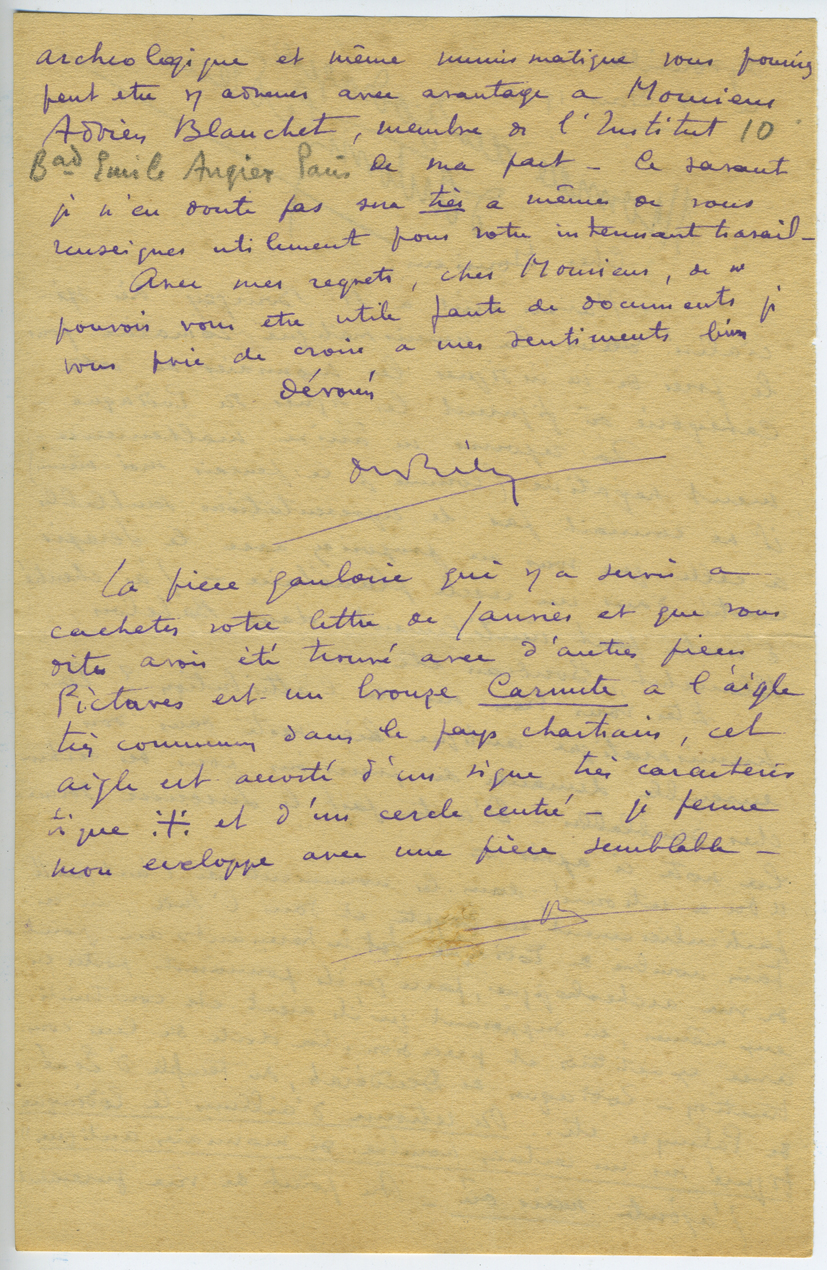 archeologique et même numismatique vous pourriez
peut etre y adresser avec avantage a Monsieur
Adrien Blanchet, membre de l'Institut 10
Bard Emile Augier Paris de ma part – Ce savant
je n'en doute pas sera très a même de vous
renseigner utilement pour votre interessant travail –
Avec mes regrets, cher Monsieur, de ne
pouvoir vous etre utile faute de documents je
vous prie de croire a mes sentiments bien
dévoués
La piece gauloise qui y a servi a
cacheter votre lettre de Janvier et que vous
dites avoir été trouvé avec d'autres pieces
Pictaves est un bronze Carnute a l'aigle
très commun dans le pays chartrain, cet
aigle est accosté d'un signe très caracteris
tique et d'un cercle centré – je ferme
mon eveloppe avec une piece semblable –
B